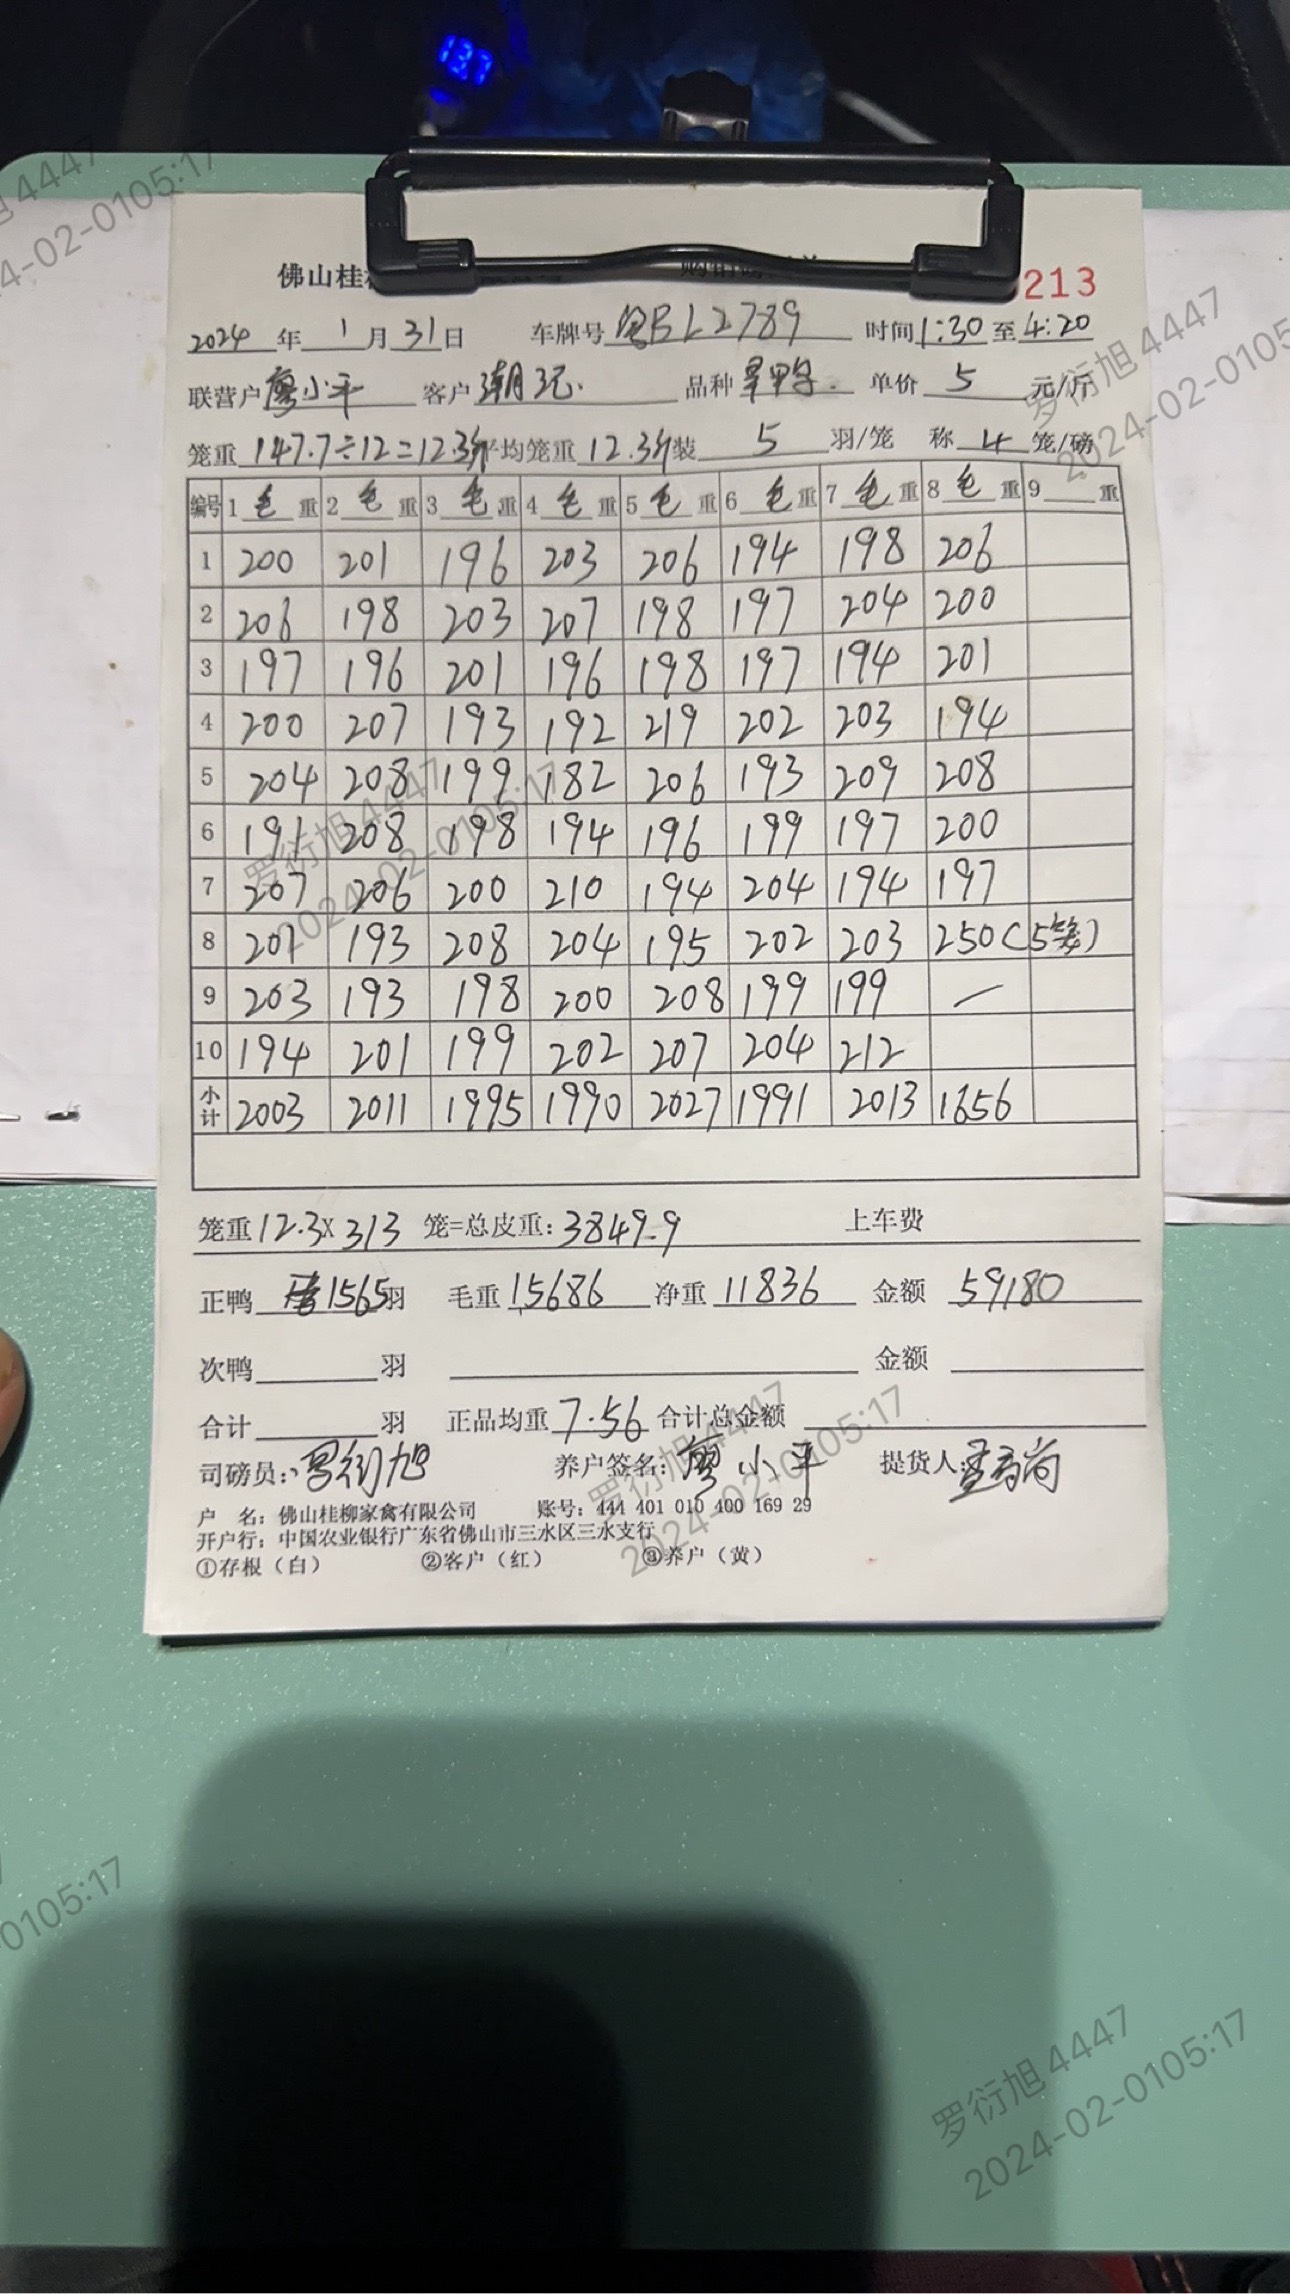 137
佛山桂
213
2024年1月31日 车牌号粤BL2789 时间1:30至4:20
联营户廖小平 客户潮记. 品种旱鸭 单价5元/斤
笼重147.7÷12=12.3斤 平均笼重12.3斤 装5羽/笼 称4笼/磅
编号 1毛重 2毛重 3毛重 4毛重 5毛重 6毛重 7毛重 8毛重 9重
1 200 201 196 203 206 194 198 206
2 206 198 203 207 198 197 204 200
3 197 196 201 196 198 197 194 201
4 200 207 193 192 219 202 203 194
5 204 208 199 182 206 193 209 208
6 191 208 198 194 196 199 197 200
7 207 206 200 210 194 204 194 197
8 201 193 208 204 195 202 203 250(5笼)
9 203 193 198 200 208 199 199 —
10 194 201 199 202 207 204 212
小计 2003 2011 1995 1990 2027 1991 2013 1656
笼重12.3X313笼=总皮重:3849.9 上车费
正鸭1565羽 毛重15686 净重11836 金额59180
次鸭羽 金额
合计羽 正品均重7.56 合计总金额
司磅员:罗衍旭 养户签名:廖小平 提货人:
户 名:佛山桂柳家禽有限公司 账号:444 401 010 400 169 29
开户行:中国农业银行广东省佛山市三水区三水支行
①存根(白) ②客户(红) ③养户(黄)
罗衍旭4447
2024-02-0105:17